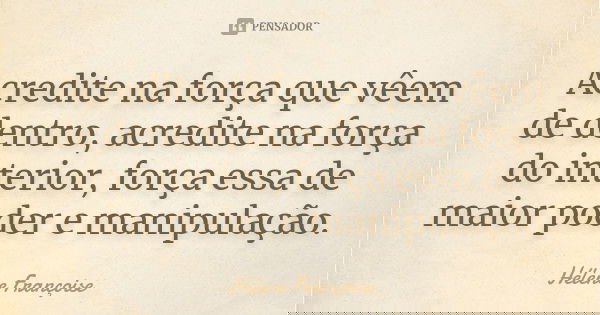 PENSADOR
Acredite na força que vêem
de dentro, acredite na força
do interior, força essa de
maior poder e manipulação.
Hélène Françoise